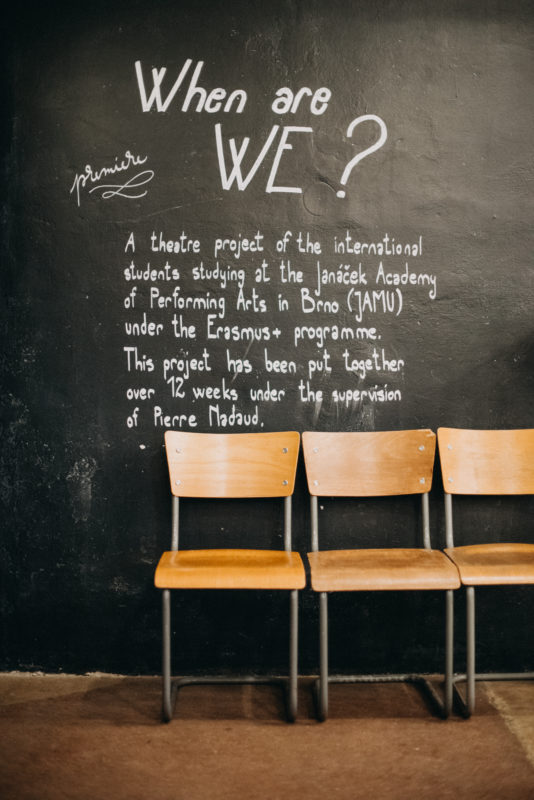 When are
WE?
premiere
A theatre project of the international
students studying at the Janáček Academy
of Performing Arts in Brno (JAMU)
under the Erasmus+ programme.
This project has been put together
over 12 weeks under the supervision
of Pierre Nadaud.